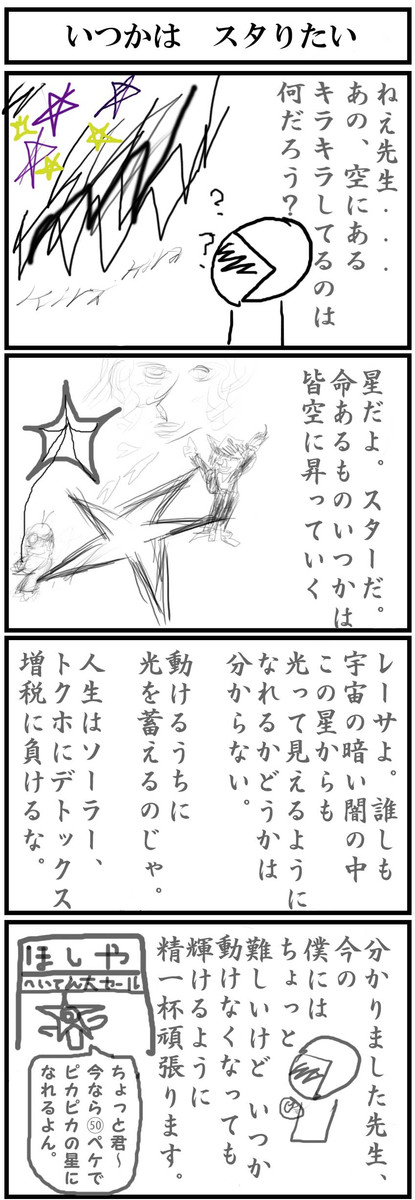 いつかは　スタりたい
ねえ先生・・・
あの、空にある
キラキラしてるのは
何だろう？
?
?
Kira Kira
星だよ。スターだ。
命あるものいつかは
皆空に昇っていく
レーサよ。誰しも
宇宙の暗い闇の中
この星からも
光って見えるように
なれるかどうかは
分からない。
動けるうちに
光を蓄えるのじゃ。
人生はソーラー、
トクホにデトックス
増税に負けるな。
分かりました先生、
今の
僕には
ちょっと
難しいけど いつか
動けなくなっても
輝けるように
精一杯頑張ります。
ほしや
へいてん大セール
ちょっと君~
今なら㊿ペケで
ピカピカの星に
なれるよん。